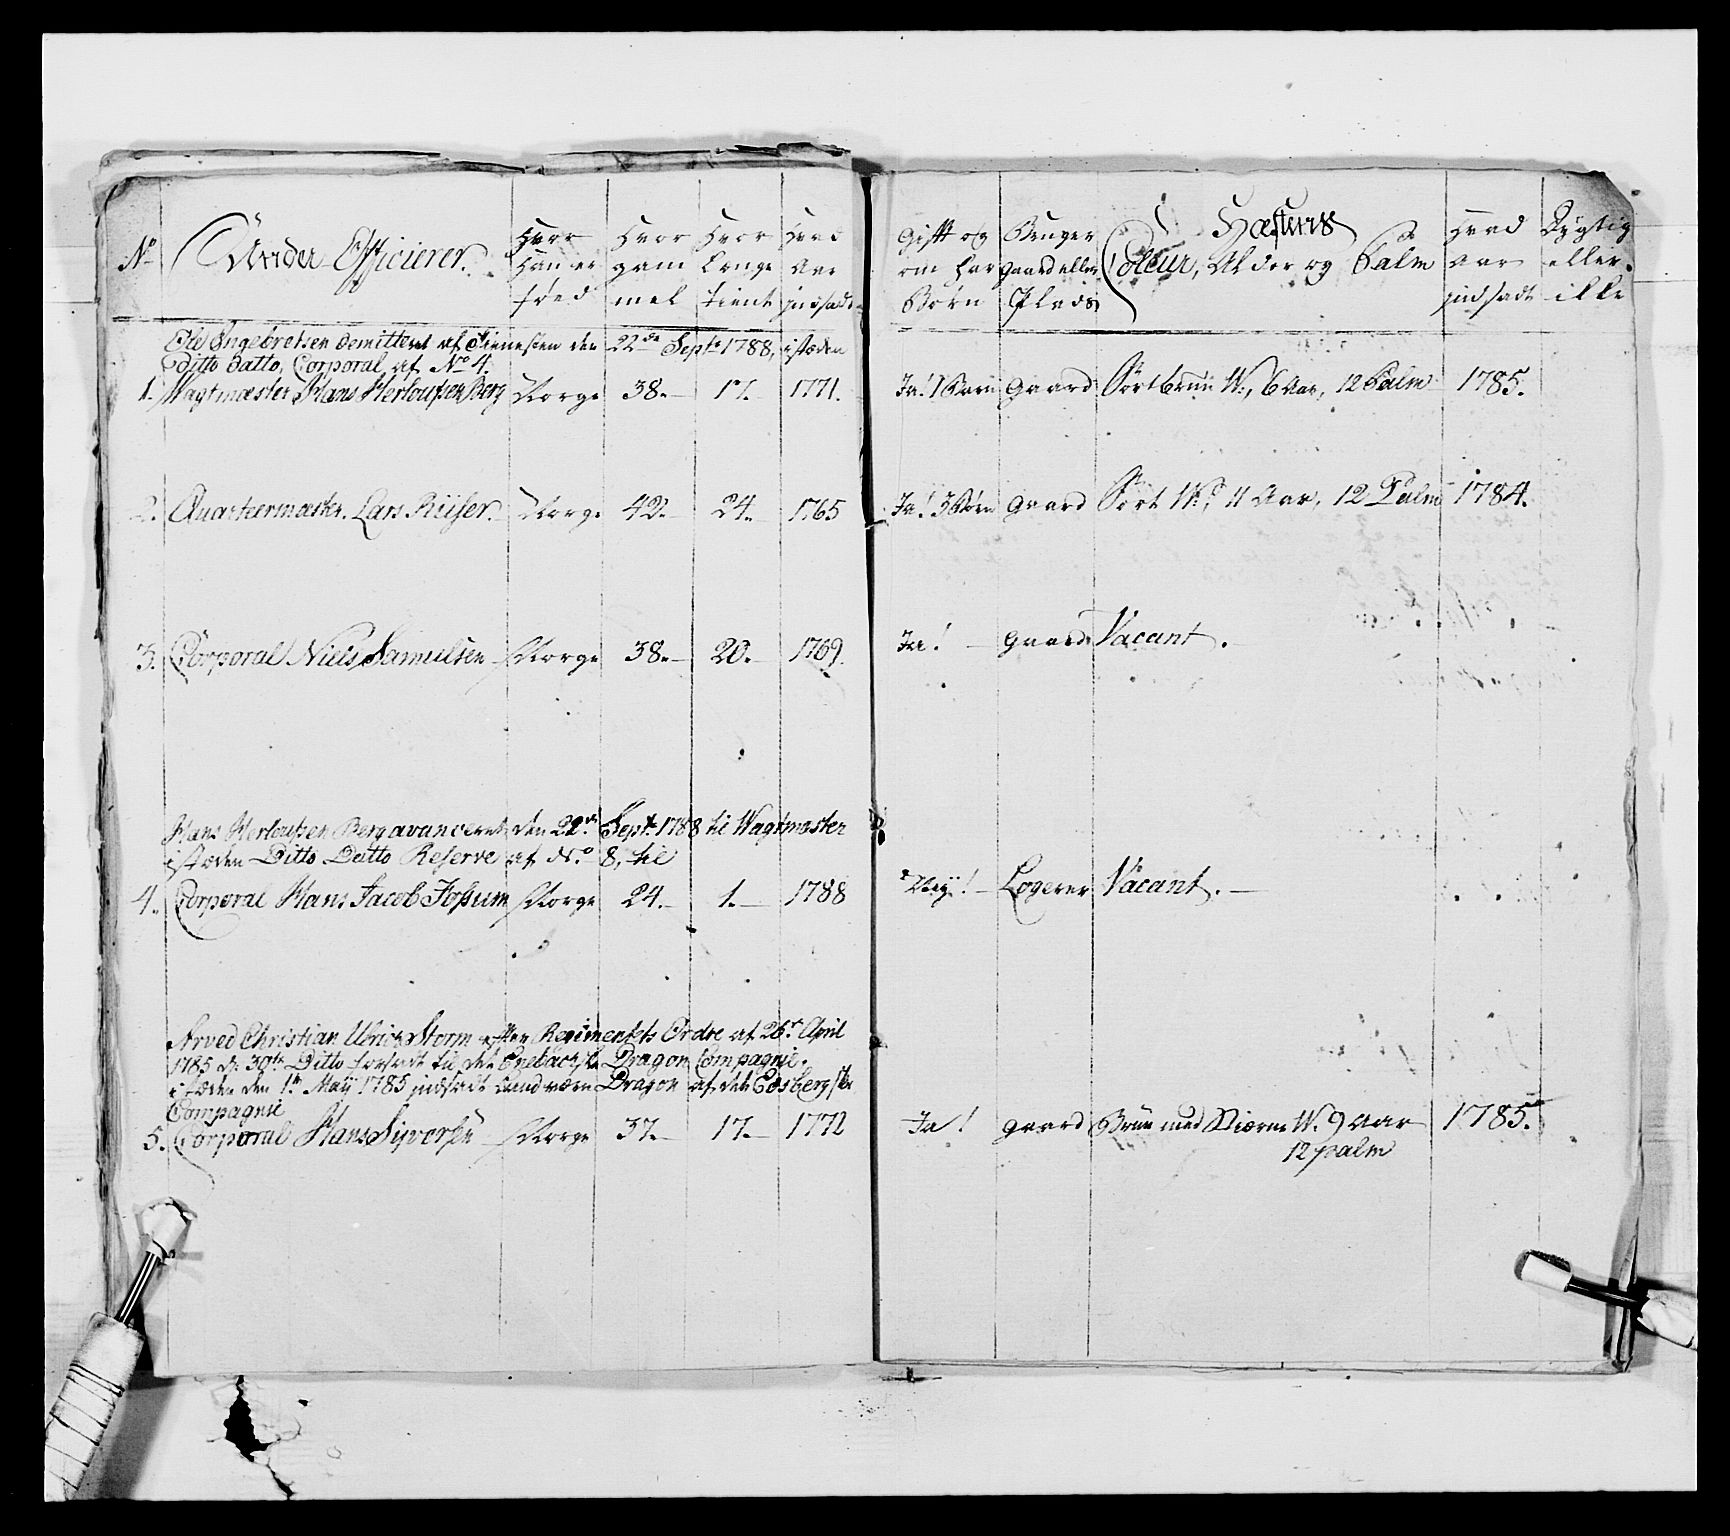 No
Under Officierer.
Hvor han er föed
Hvor gam mel
Hvor Længe tient
Hvad Aar indsadt
Gifft og om har Börn
Bruger gaard eller Plads
Hæstens Coleur, Alder og Palm
Hvad Aar indsadt
Dygtig eller ikke
Ole Ingebretsen demitteret af Tienesten den 22de Septr 1788, istæden
Ditto Datto, Corporal af No 4.
1. Wagtmæster Hans Herloufsen Berg Norge 38. 17. 1771. Ja! 1 Barn Gaard Sortbrun W., 6 Aar, 12 Palm 1785.
2. Quarteermæster. Lars Riiser. Norge 42. 24. 1765 Ja! 3 Börn Gaard Sort W., 11 Aar, 12 Palm 1784.
3. Corporal Niels Samuelsen Norge 38. 20. 1769. Ja! Gaard Vacant.
Hans Herloufsen Berg avanceret den 22de Septr 1788 til Wagtmæster
istæden Ditto Datto Reserve af No 8, til
4. Corporal Hans Jacob Fossum Norge 24. 1. 1788 Ney! Logerer Vacant.
Arved Christian Ulrich Storm efter Regimentets Ordre af 26t April
1785 d: 30te Ditto forsadt til det Enebachske Dragon Compagnie.
istæden den 1te Maÿ 1785 indsadt Landværn Dragon af det Edsbergske
Compagnie
5. Corporal Hans Syversen Norge 37. 17. 1772 Ja! gaard Brun med Stierne W. 9 Aar 1785.
12 palm